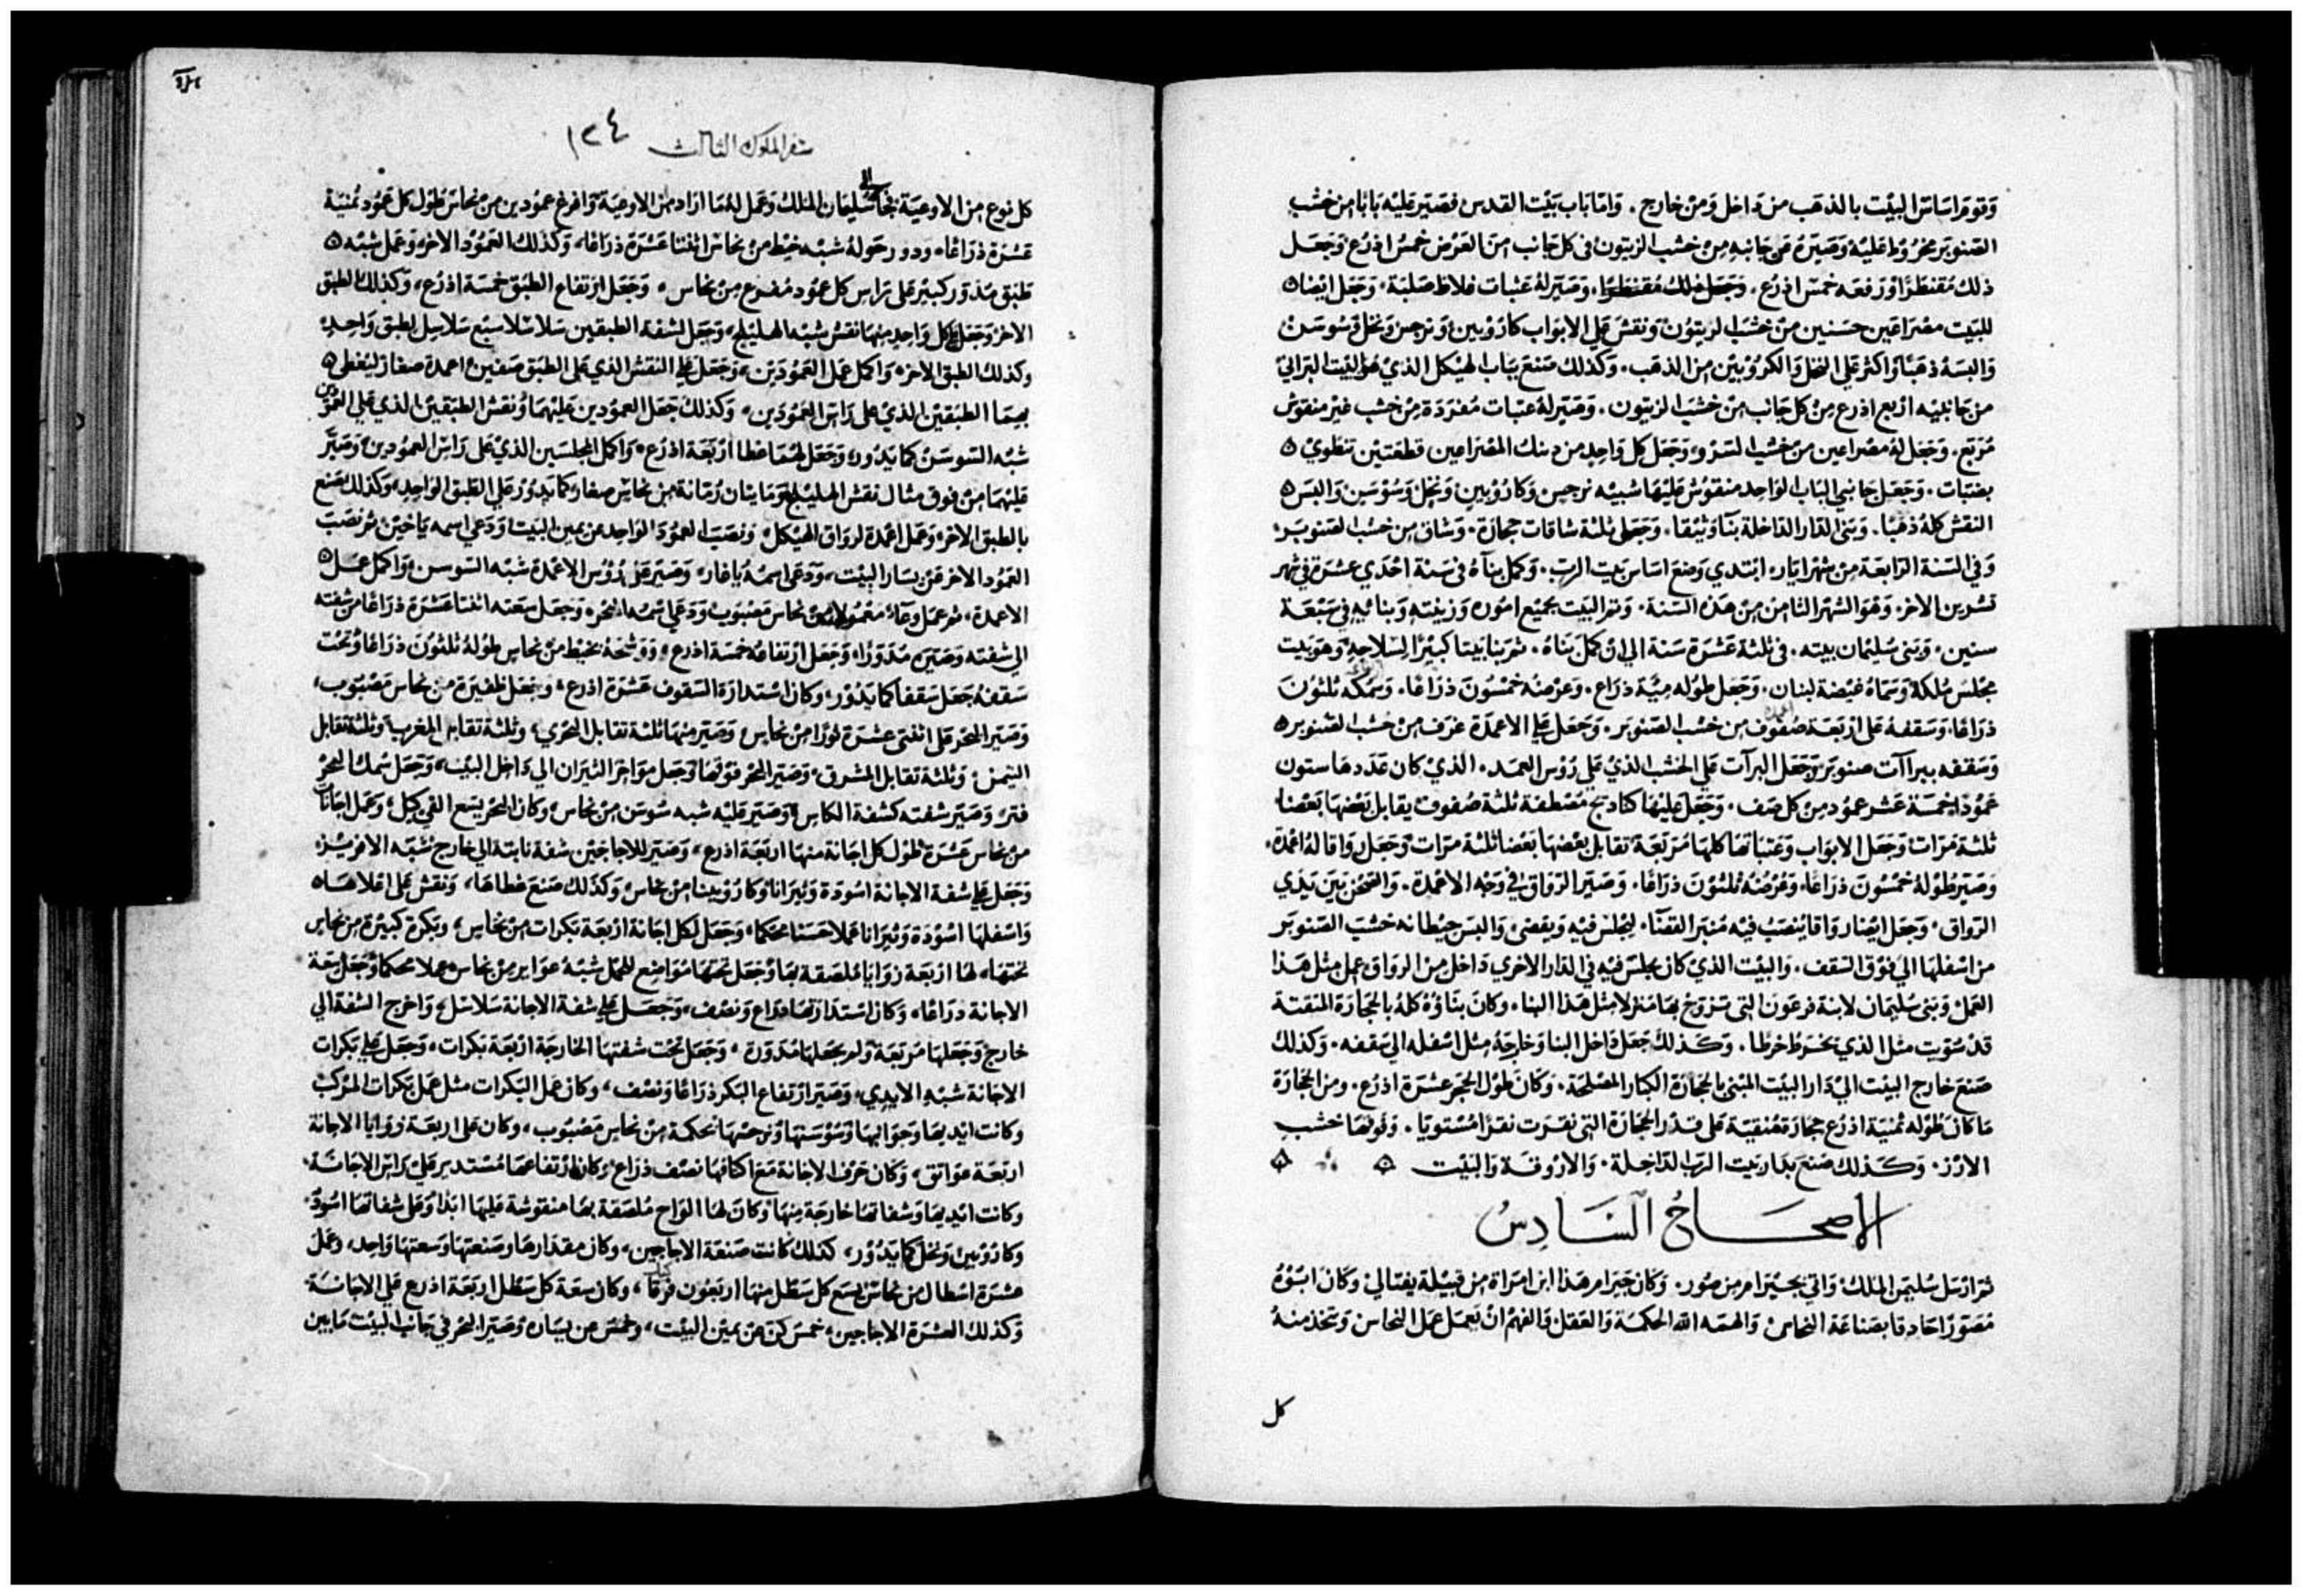 وقوم اساس البيت بالذهب من داخل ومن خارج. واما باب بيت القدس فصير عليه بابا من خشب
الصنوبر مخروط عليه وصيره من جانبه من خشب الزيتون في كل جانب من العرض خمس اذرع وجعل
ذلك مقنطرا ورفعه خمس اذرع. وصير له عتبات غلاظ صلبة. وجعل ايضا
للبيت مصراعين حسنين من خشب الزيتون ونقش على الابواب كاروبين ونرجس ونخل وسوسن
والبسه ذهبا واكثر على النخل والكروبين من الذهب. وكذلك صنع بباب الهيكل الذي هو البيت البراني
من جانبيه اربع اذرع من كل جانب من خشب الزيتون. وصير له عتبات مفردة من خشب غير منقوش
مربع. وجعل له مصراعين من خشب السرو وجعل كل واحد من دينك المصراعين قطعتين تنطوي
بضبات. وجعل جانبي الباب الواحد منقوش عليها شبيه نرجس وكاروبين ونخل وسوسن والبس
النقش كله ذهبا. وبنى الدار الداخلة بناء وثيقا. وجعل ثلثة ساقات حجارة. وساق من خشب الصنوبر
وفي السنة الرابعة من شهر ايار ابتدي وضع اساس بيت الرب. وكمل بناه في سنة احدي عشرة في شهر
تشرين الاخر. وهو الشهر الثامن من هذه السنة. وتم البيت بجميع اموره وزينته وبنائه في سبعة
سنين. وبنى سليمان بيته. في ثلثة عشرة سنة الي ان كمل بناه. ثم بنا بيتا كبيرا للسلاح وهو بيت
مجلس ملكه وسماه غيضة لبنان. وجعل طوله مية ذراع. وعرضه خمسون ذراعا. وسمكه ثلثون
ذراعا. وسقفه على اربعة صفوف من خشب الصنوبر. وجعل على الاعمدة غرف من خشب الصنوبر
وسقفه ببراآت صنوبر وجعل البرآت على الخشب الذي على رؤس العمد. الذي كان عددها ستون
عمودا خمسة عشر عمود من كل صف. وجعل عليها كنادبج مصطفة ثلثة صفوف يقابل بعضها بعضا
ثلثة مرات وجعل الابواب وعتباتها كلها مربعة تقابل بعضها بعضا ثلثة مرات وجعل رواقا له اعمدة.
وصير طوله خمسون ذراعا. وعرضه ثلثون ذراعا. وصير الرواق في وجه الاعمدة. والصحن بين يدي
الرواق. وجعل ايضا رواقا ينصب فيه منبر القضا. ليجلس فيه ويقضي والبس حيطانه خشب الصنوبر
من اسفلها الي فوق السقف. والبيت الذي كان يجلس فيه في الدار الاخري داخل من الرواق عمل مثل هذا
العمل وبنى سليمان لابنة فرعون التي تزوج بها منزلا مثل هذا البنا. وكان بناؤه كله بالحجارة المنقتة
قد سويت مثل الذي يخرط خرطا. وكذلك جعل داخل البنا وخارجه مثل اسفله الي سقفه. وكذلك
صنع خارج البيت الي دار البيت المبنى بالحجارة الكبار المصلحة. وكان طول الحجر عشرة اذرع. ومن الحجارة
ما كان طوله ثمنية اذرع حجارة منقية على قدر الحجارة التي نقرت نقرا مستويا. وفوقها خشب
الارز. وكذلك صنع بدار بيت الرب الداخلة. والاروقة والبيت
الاصحاح السادس
ثم ارسل سليمن الملك واتي بحيرام من صور. وكان حيرام هذا ابن امراة من قبيلة يفتالي وكان ابوه
مصورا حادقا بصناعة النحاس والهمه الله الحكمة والعقل والفهم ان يعمل عمل النحاس ويتخذ منه
كل
سفر الملوك الثالث ١٣٤
كل نوع من الاوعية فجا الي سليمان الملك وعمل له ما اراد من الاوعية وافرغ عمودين من نحاس طول كل عمود ثمنية
عشرة ذراعا ودور حوله شبه خيط من نحاس اثنتا عشرة ذراعا، وكذلك العمود الاخر وعمل شبه
طبق مدور كبير على راس كل عمود مفرغ من نحاس، وجعل ارتفاع الطبق خمسة اذرع، وكذلك الطبق
الاخر وجعل على كل واحد منهما نقش شبه الهليلج، وجعل لشفة الطبقين سلاسلا سبع سلاسل لطبق واحد
وكذلك الطبق الاخر واكمل عمل العمودين، وجعل على النقش الذي على الطبق صفين اعمدة صغار ليغطى
بهما الطبقين الذي على راس العمودين، وكذلك جعل العمودين عليهما ونقش الطبقين الذي على العمودين
شبه السوسن كما يدور، وجعل لهما غطا اربعة اذرع، واكمل المجلسين الذي على راس العمودين وصير
عليهما من فوق مثال نقش الهليلج ومايتان رمانة من نحاس صغار كما يدور على الطبق الواحد، وكذلك صنع
بالطبق الاخر وعمل اعمدة لرواق الهيكل، ونصب العمود الواحد عن يمين البيت ودعي اسمه ياخين، ثم نصب
العمود الاخر عن يسار البيت، ودعى اسمه باغاز، وصير على رؤس الاعمدة شبه السوسن، واكمل عمل
الاعمدة، ثم عمل وعاء معمولا من نحاس مصبوب ودعى اسمه البحر، وجعل سعته اثنتا عشرة ذراعا من شفته
الي شفته وصيره مدورا، وجعل ارتفاعه خمسة اذرع، ووشحه بخيط من نحاس طوله ثلثون ذراعا وتحت
سقفه جعل سقفا كما يدور، وكان استدارة السقوف عشرة اذرع، وجعل ظفيرة من نحاس مصبوب،
وصير البحر على اثنتي عشرة ثورا من نحاس، وصير منها ثلثة تقابل البحري، وثلثة تقابل المغرب، وثلثة تقابل
التيمن، وثلثة تقابل المشرق، وصير البحر فوقها وجعل مواخر الثيران الي داخل البيت، وجعل سمك البحر
فتر، وصير شفته كشفة الكاس، وصير عليه شبه سوسن من نحاس، وكان البحر يسع الفي كيل، وعمل اجانات
من نحاس عشرة طول كل اجانة منها اربعة اذرع، وصير للاجاجين شفة نابتة الي خارج شبه الافريز،
وجعل على شفة الاجانة اسودة وثيرانا وكاروبينا من نحاس، وكذلك صنع غطاها، ونقش على اعلاها
واسفلها اسودة وثيرانا عملا حسنا محكما، وجعل لكل اجانة اربعة بكرات من نحاس، وبكرة كبيرة من نحاس
تحتها، لها اربعة زوايا ملصقة بها وجعل تحتها مواضع للحمل شبه عوابر من نحاس عملا محكما وجعل سعة
الاجانة دراعا، وكان استدارتها دراع ونصف، وجعل على شفة الاجانة سلاسل، واخرج الشفة الي
خارج وجعلها مربعة ولم يجعلها مدورة، وجعل تحت شفتها الخارجة اربعة بكرات، وجعل على بكرات
الاجانة شبه الايدي، وصير ارتفاع البكر ذراعا ونصف، وكان عمل البكرات مثل عمل بكرات المركب
وكانت ايديها وجوانبها وسوستها ونرجسها محكمة من نحاس مصبوب، وكان على اربعة زوايا الاجانة
اربعة عواتق، وكان حرف الاجانة مع اكتافها نصف ذراع، وكان ارتفاعها مستدير على راس الاجانة،
وكانت ايديها وشفاتها خارجة منها وكان لها الواح ملصقة بها منقوشة عليها ابدا وعلى شفاتها اسود
وكاروبين ونخل كما يدور، كذلك كانت صنعة الاجاجين، وكان مقدارها وصنعتها وسعتها واحد، وعمل
عشرة اسطال من نحاس يسع كل سطل منها اربعون فرقا، وكان سعة كل سطل اربعة اذرع على الاجانة
وكذلك العشرة الاجاجين، خمس كن عن يمين البيت، وخمس عن يساره وصير البحر في جانب البيت مما يين